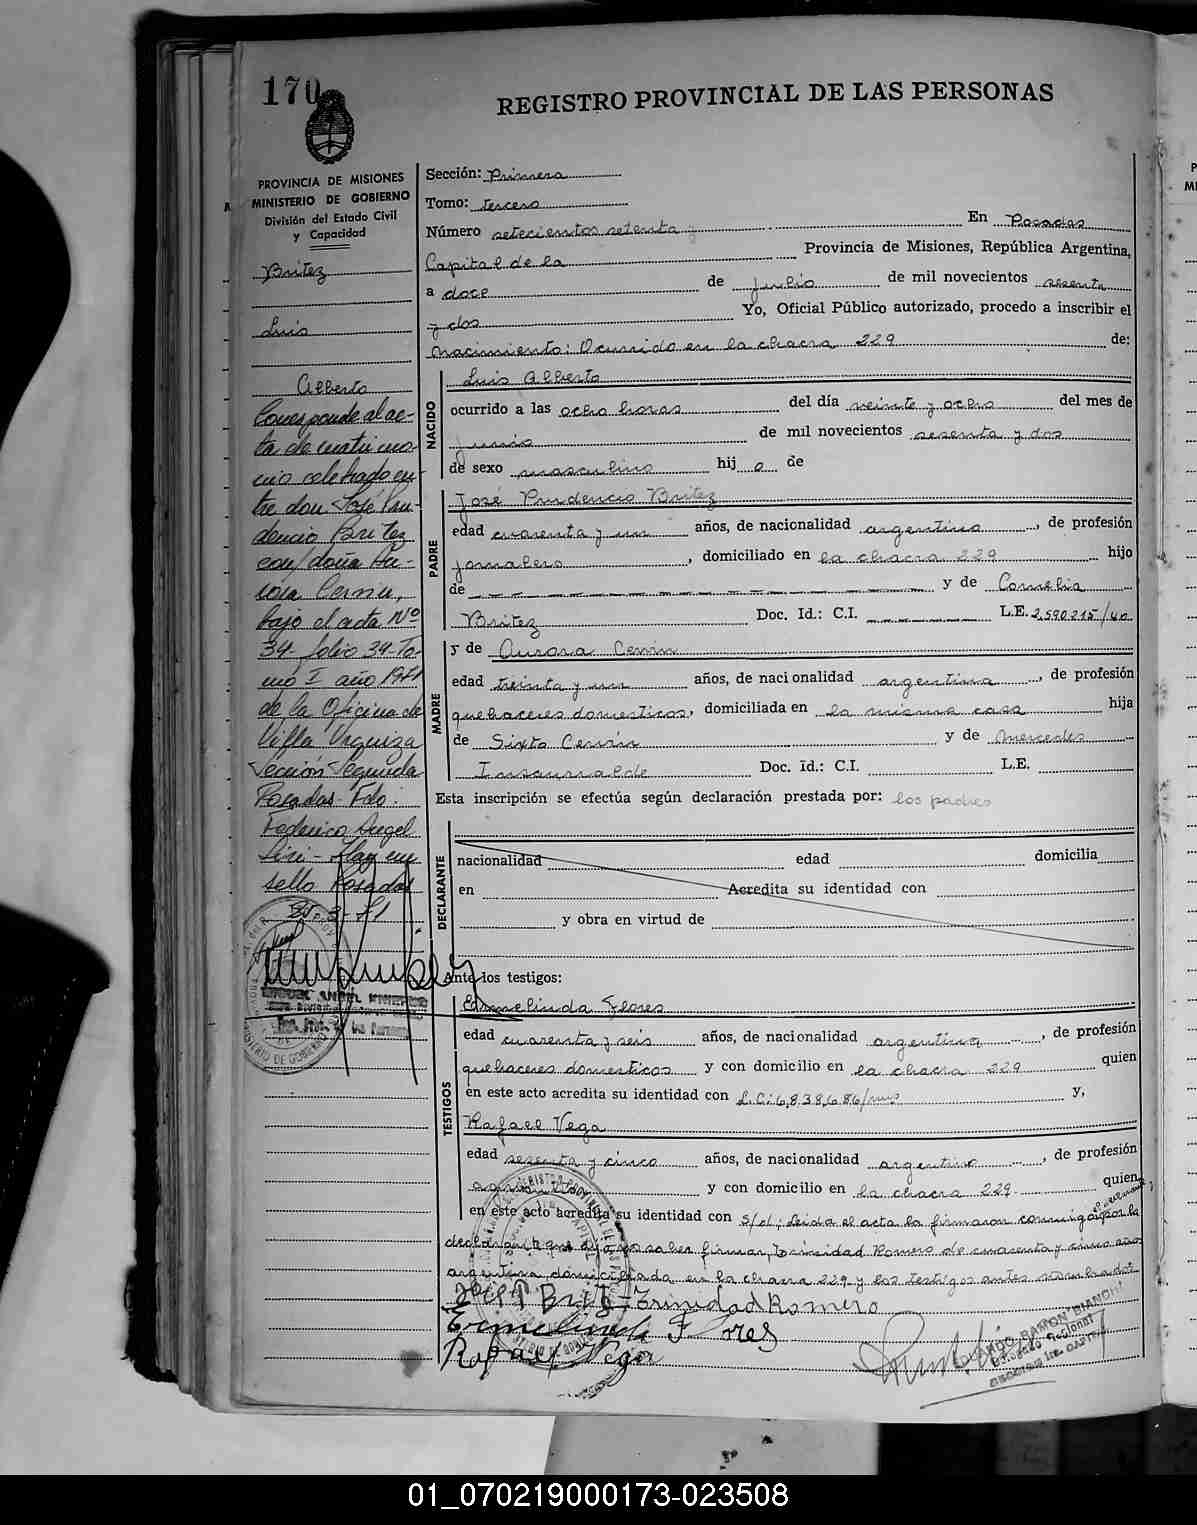 170
REGISTRO PROVINCIAL DE LAS PERSONAS
PROVINCIA DE MISIONES
MINISTERIO DE GOBIERNO
División del Estado Civil
y Capacidad
Britez
Luis
Alberto
Corresponde al ac-
ta de matrimo-
nio celebrado en-
tre don José Pru-
dencio Britez
con/doña Au-
rora Cerrin,
bajo el acta Nº
34 folio 34-To-
mo I año 1971
de la Oficina de
Villa Urquiza
Sección Segunda
Posadas-Fdo:
Federico Angel
Siri-Hay un
sello Posadas
Sección: Primera
Tomo: tercero
Número setecientos setenta y
En Posadas
Capital de la Provincia de Misiones, República Argentina,
a doce de julio de mil novecientos sesenta
y dos Yo, Oficial Público autorizado, procedo a inscribir el
nacimiento: Ocurrido en la chacra 229 de:
NACIDO
Luis Alberto
ocurrido a las ocho horas del día veinte y ocho del mes de
junio de mil novecientos sesenta y dos
de sexo masculino hij o de
PADRE
José Prudencio Britez
edad cuarenta y un años, de nacionalidad argentino, de profesión
jornalero, domiciliado en la chacra 229 hijo
de y de Cornelia
Britez Doc. Id.: C.I. L.E. 2,590215/40
MADRE
y de Aurora Cerrin
edad treinta y un años, de nacionalidad argentina, de profesión
quehaceres domesticos, domiciliada en la misma casa hija
de Sixto Cerrin y de Mercedes
Insaurralde Doc. Id.: C.I. L.E.
Esta inscripción se efectúa según declaración prestada por: los padres
DECLARANTE
nacionalidad edad domicilia
en Acredita su identidad con
y obra en virtud de
Ante los testigos:
TESTIGOS
Ermelinda Flores
edad cuarenta y seis años, de nacionalidad argentina, de profesión
quehaceres domesticos y con domicilio en la chacra 229 quien
en este acto acredita su identidad con L.C: 6,838,686/mis y,
Rafael Vega
edad sesenta y cinco años, de nacionalidad argentino, de profesión
y con domicilio en la chacra 229 quien
en este acto acredita su identidad con s/d; leida el acta la firmaron conmigo por la
declarante que dijo no saber firmar, Trinidad Romero de cuarenta y cinco años
argentina, domiciliada en la chacra 229 y los testigos antes nombrados
Trinidad Romero
Ermelinda Flores
Rafael Vega
01_070219000173-023508